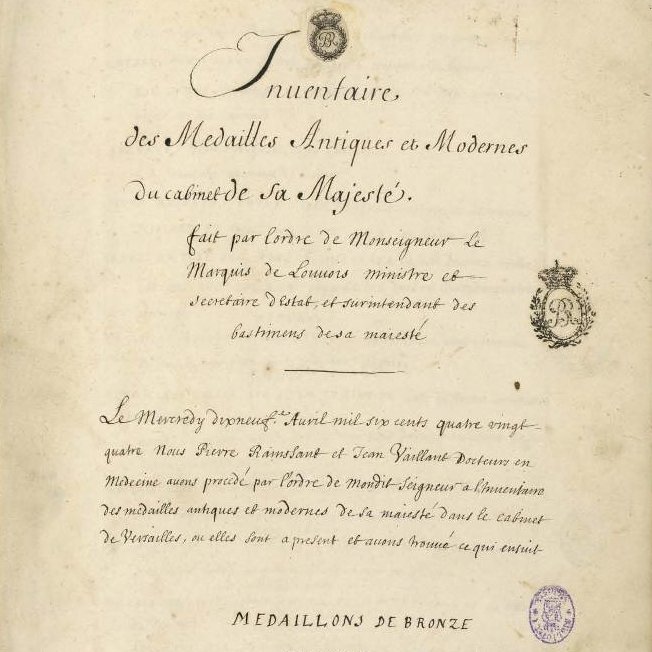 BR
Inuentaire
des Medailles Antiques et Modernes
du cabinet de sa Majesté.
fait par l'ordre de Monseigneur Le
Marquis de Louvois ministre et
secretaire d'Estat, et surintendant des
bastimens de sa maiesté
BR
Le Mercredy dixneuf.e Auril mil six cents quatre vingt
quatre Nous Pierre Rainssant et Jean Vaillant Docteurs en
Medecine auons procedé par l'ordre de mondit seigneur a l'Inuentaire
des medailles antiques et modernes de sa maiesté dans le cabinet
de Versailles, ou elles sont a present et auons trouué ce qui ensuit
MEDAILLONS DE BRONZE